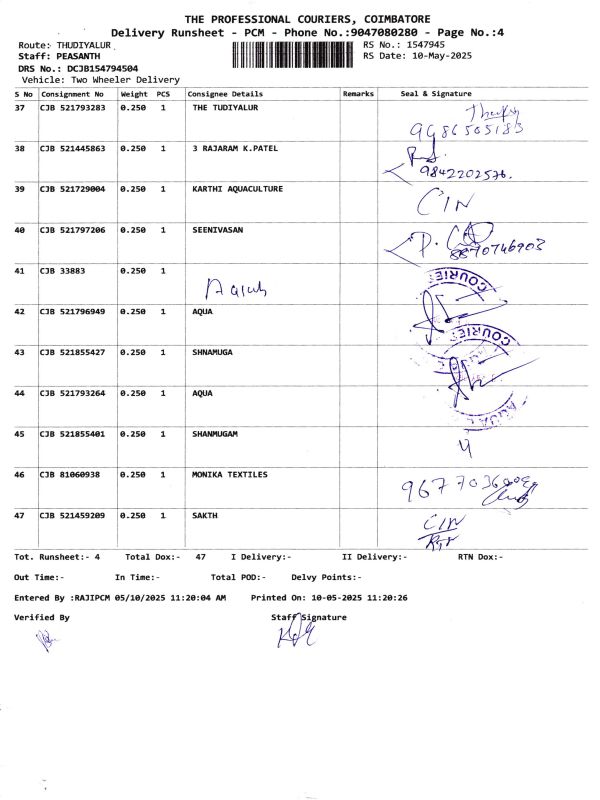 THE PROFESSIONAL COURIERS, COIMBATORE
Delivery Runsheet - PCM - Phone No.:9047080280 - Page No.:4
Route: THUDIYALUR
RS No.: 1547945
Staff: PEASANTH
RS Date: 10-May-2025
DRS No.: DCJB154794504
Vehicle: Two Wheeler Delivery
S No Consignment No Weight PCS Consignee Details Remarks Seal & Signature
37 CJB 521793283 0.250 1 THE TUDIYALUR
38 CJB 521445863 0.250 1 3 RAJARAM K.PATEL
9842202576.
39 CJB 521729004 0.250 1 KARTHI AQUACULTURE
CIN
40 CJB 521797206 0.250 1 SEENIVASAN
8870746903
41 CJB 33883 0.250 1
COURIER
42 CJB 521796949 0.250 1 AQUA
COURIER
43 CJB 521855427 0.250 1 SHNAMUGA
44 CJB 521793264 0.250 1 AQUA
45 CJB 521855401 0.250 1 SHANMUGAM
46 CJB 81060938 0.250 1 MONIKA TEXTILES
47 CJB 521459209 0.250 1 SAKTH
CIN
Tot. Runsheet:- 4 Total Dox:- 47 I Delivery:- II Delivery:- RTN Dox:-
Out Time:- In Time:- Total POD:- Delvy Points:-
Entered By :RAJIPCM 05/10/2025 11:20:04 AM Printed On: 10-05-2025 11:20:26
Verified By Staff Signature